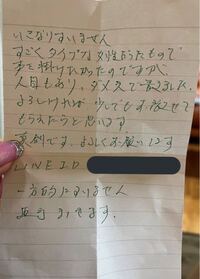 いきなりすいません
すごくタイプな女性だったもので
声を掛けたかったのですが、
人目もあり、ダメ元で書きました。
よろしければ少しでもお話させて
もらえたらと思います。
真剣です。よろしくお願いします
LINE ID
一方的にすいません
待ってます。